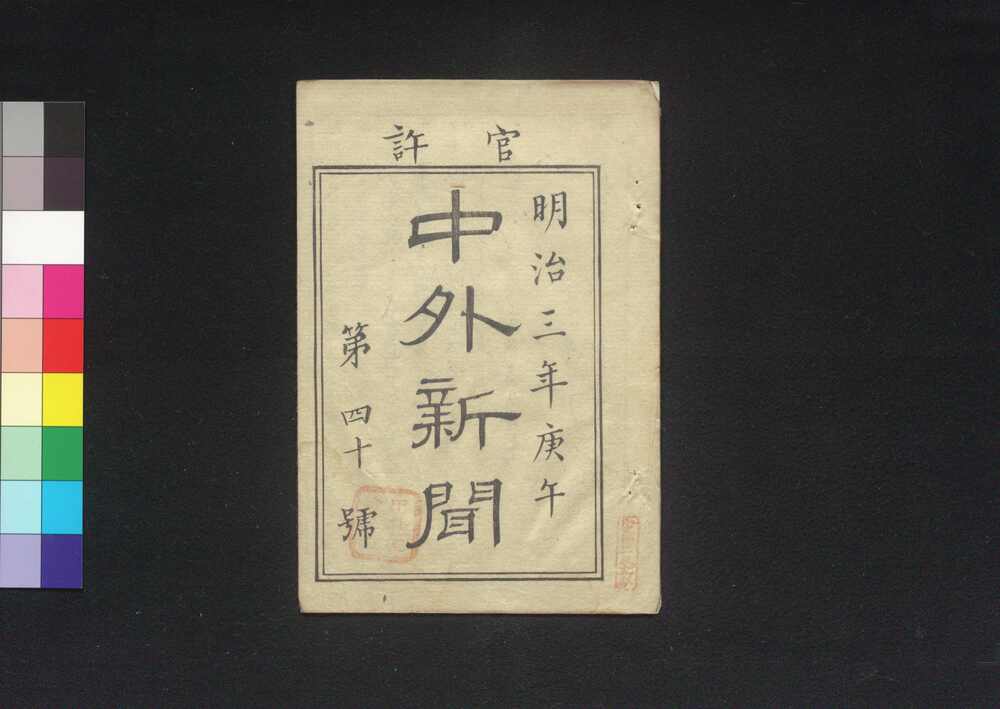 官許
明治三年庚午
中外新聞
第四十號